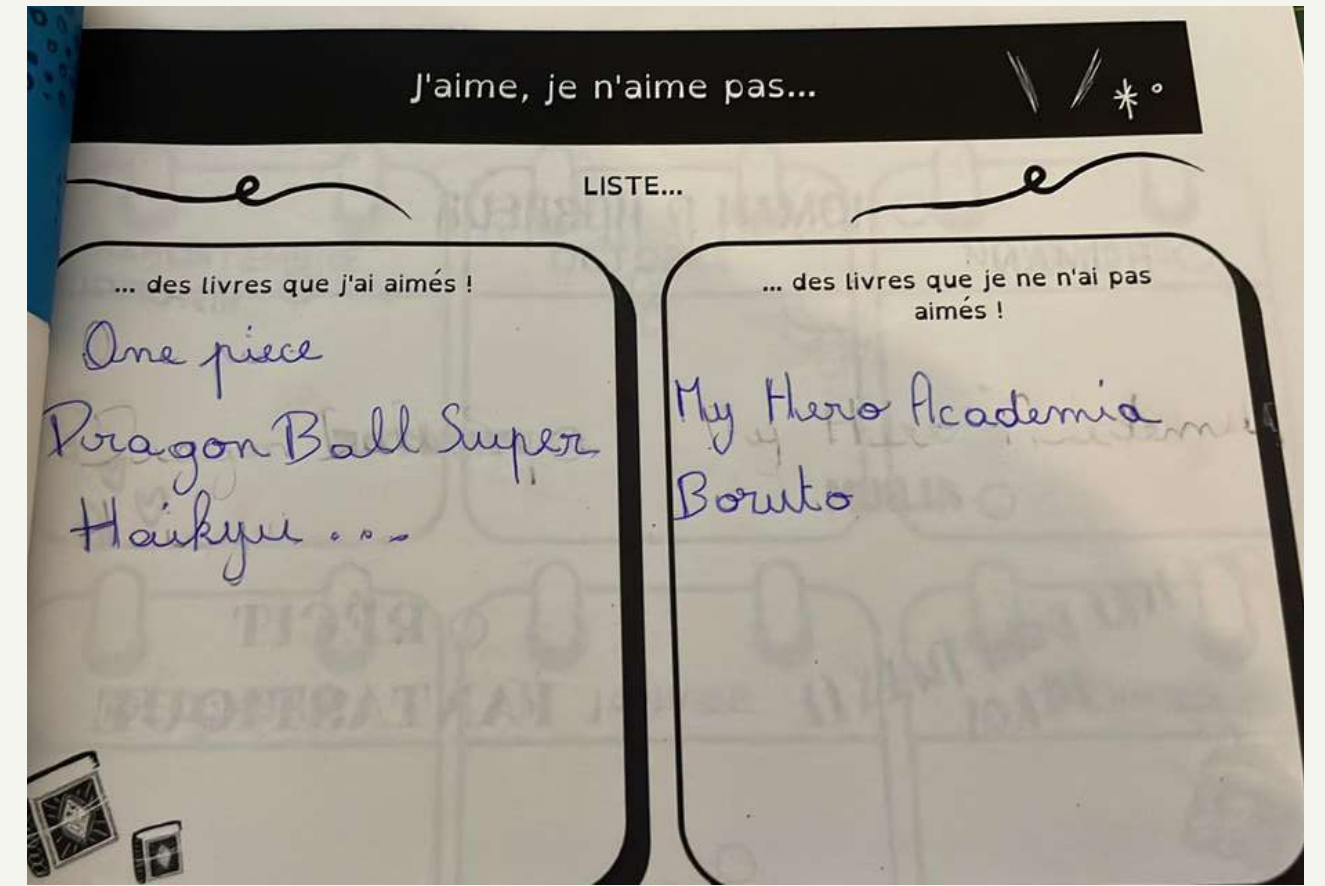 J'aime, je n'aime pas...
LISTE...
... des livres que j'ai aimés !
One piece
Dragon Ball Super
Haikyu ...
... des livres que je ne n'ai pas
aimés !
My Hero Academia
Boruto